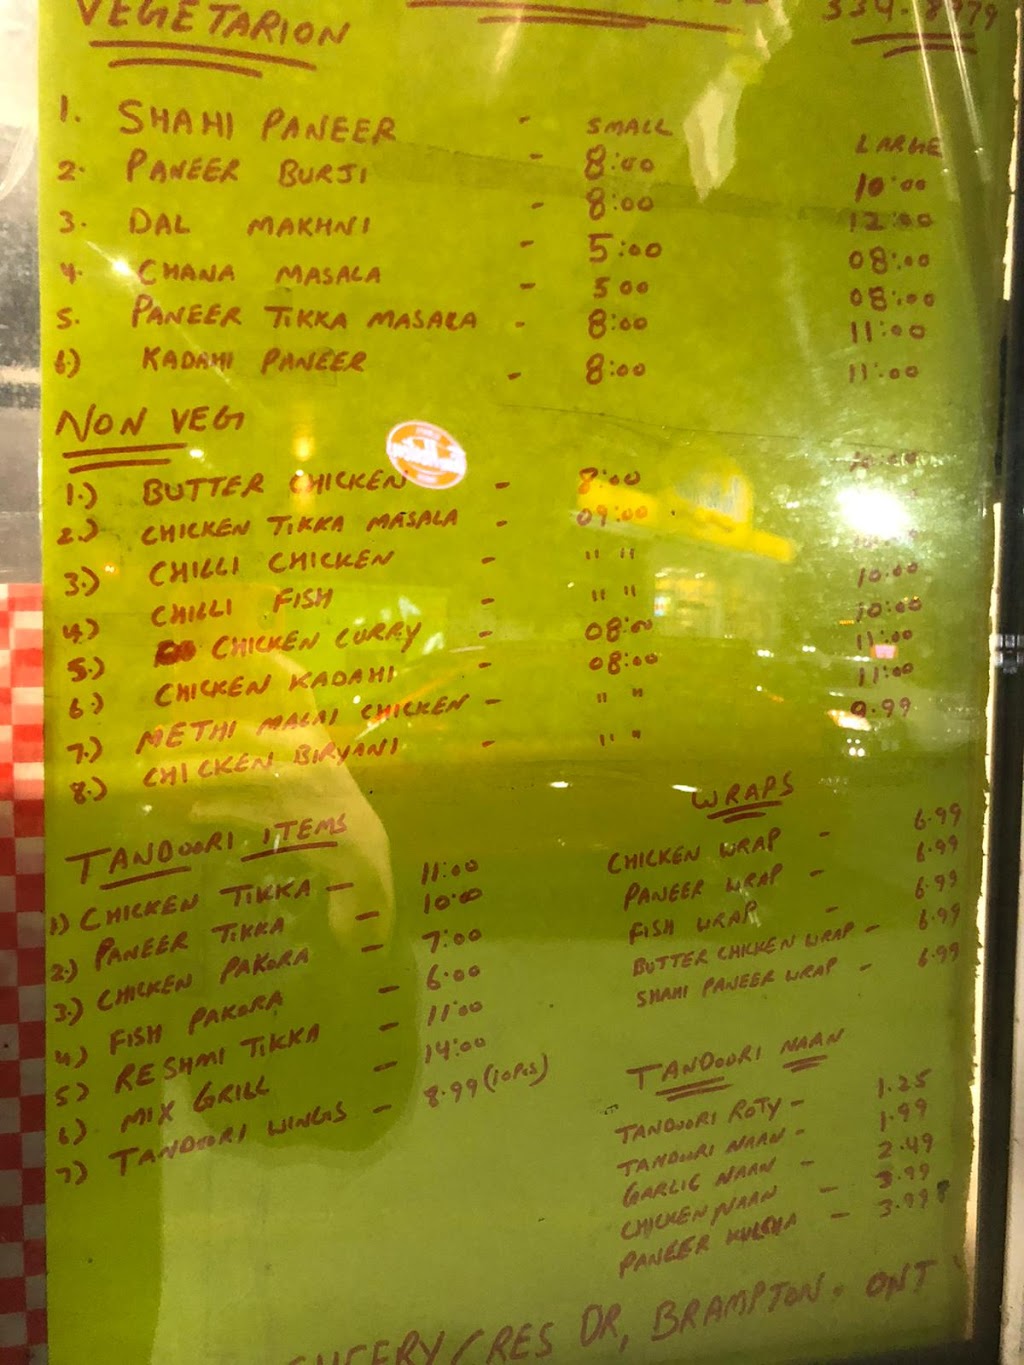 VEGETARION 334-8979
SMALL LARGE
1. SHAHI PANEER - 8:00 10:00
2. PANEER BURJI - 8:00 12:00
3. DAL MAKHNI - 5:00 08:00
4. CHANA MASALA - 500 08:00
5. PANEER TIKKA MASALA - 8:00 11:00
6.) KADAHI PANEER - 8:00 11:00
NON VEG
1.) BUTTER CHICKEN - 8:00
2.) CHICKEN TIKKA MASALA - 09:00
3.) CHILLI CHICKEN - " " 10:00
4.) CHILLI FISH - " " 10:00
5.) CHICKEN CURRY - 08:00 11:00
6.) CHICKEN KADAHI - 08:00 11:00
7.) METHI MALAI CHICKEN - " " 9.99
8.) CHICKEN BIRYANI - " "
TANDOORI ITEMS
1) CHICKEN TIKKA - 11:00
2.) PANEER TIKKA - 10:00
3.) CHICKEN PAKORA - 7:00
4) FISH PAKORA - 6:00
5) RESHMI TIKKA - 11:00
6) MIX GRILL - 14:00
7) TANDOORI WINGS - 8.99 (10 PCS)
WRAPS
CHICKEN WRAP - 6.99
PANEER WRAP - 6.99
FISH WRAP - 6.99
BUTTER CHICKEN WRAP - 6.99
SHAHI PANEER WRAP - 6.99
TANDOORI NAAN
TANDOORI ROTY - 1.25
TANDOORI NAAN - 1.99
GARLIC NAAN - 2.49
CHICKEN NAAN - 3.99
PANEER KULCHA - 3.99
CRES DR, BRAMPTON. ONT